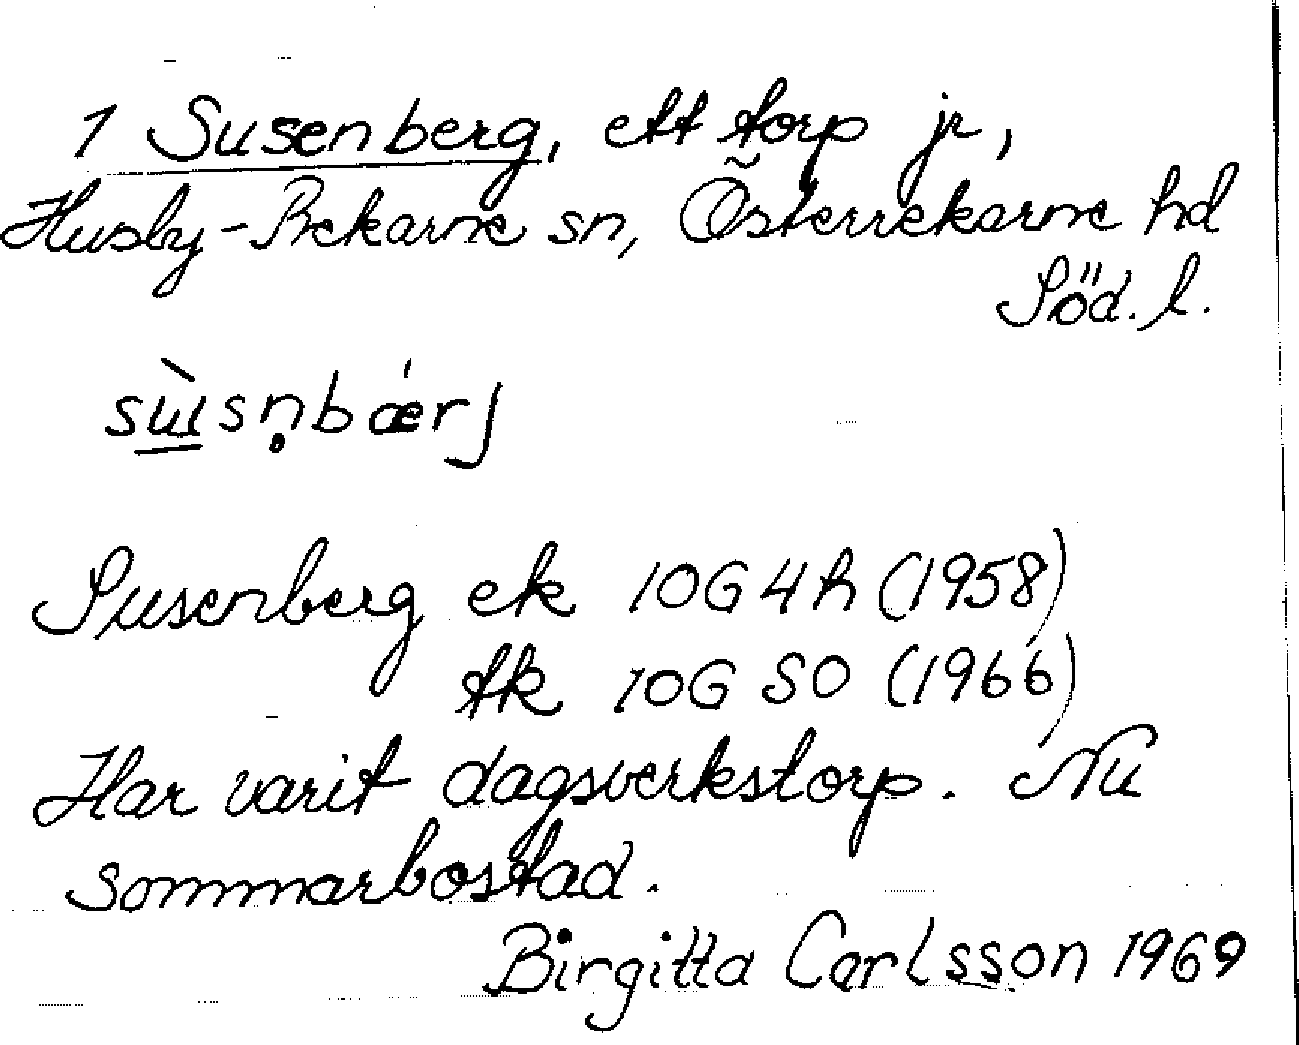 1 Susenberg, ett torp jr,
Husby-Rekarne sn, Österrekarne hd
Söd. l.
sɯ̀snbǽrj
Susenberg ek 10G4h (1958)
tk 10G SO (1966)
Har varit dagsverkstorp. Nu
sommarbostad.
Birgitta Carlsson 1969